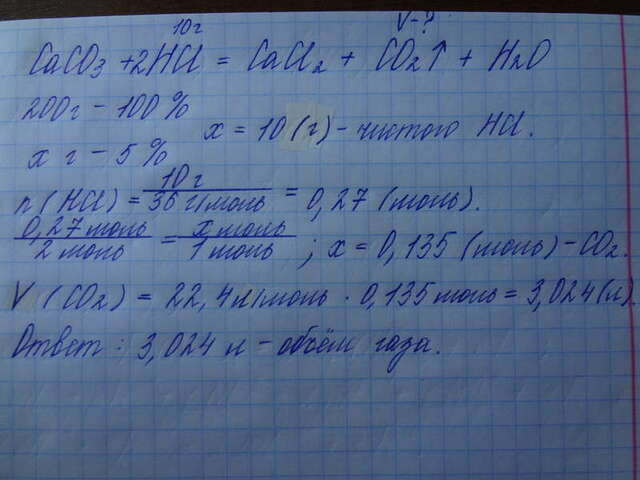 10г V-?
CaCO3 + 2HCl = CaCl2 + CO2↑ + H2O
200г - 100 %
x = 10 (г) - чистого HCl.
x г - 5 %
n (HCl) = 10 г / 36 г/моль = 0,27 (моль).
0,27 моль / 2 моль = x моль / 1 моль ; x = 0,135 (моль) - CO2.
V (CO2) = 22,4 л/моль · 0,135 моль = 3,024 (л)
Ответ : 3,024 л - объём газа.